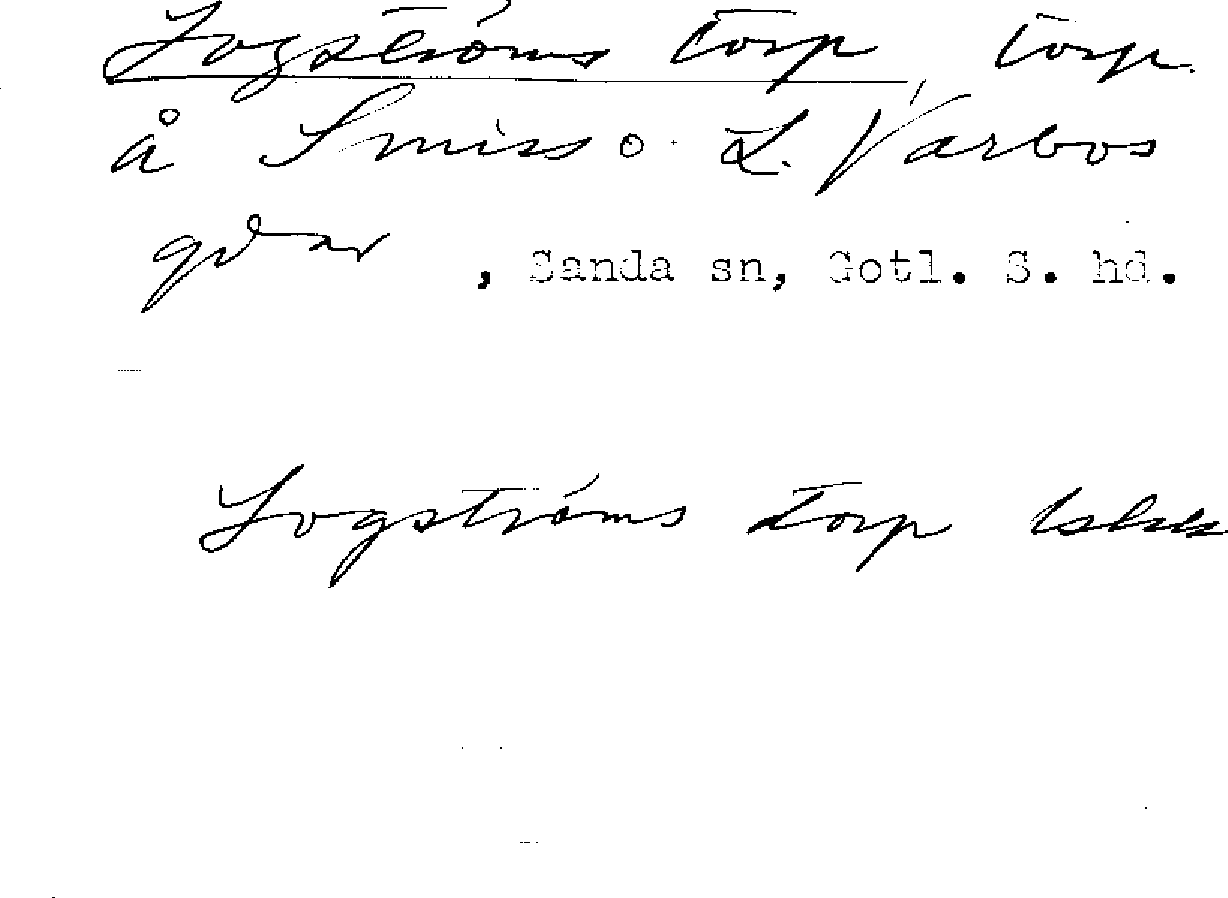 Logströms torp, torp.
å Smiss o. L. Varbos
gdar, Sanda sn, Gotl. S. hd.
Logströms torp